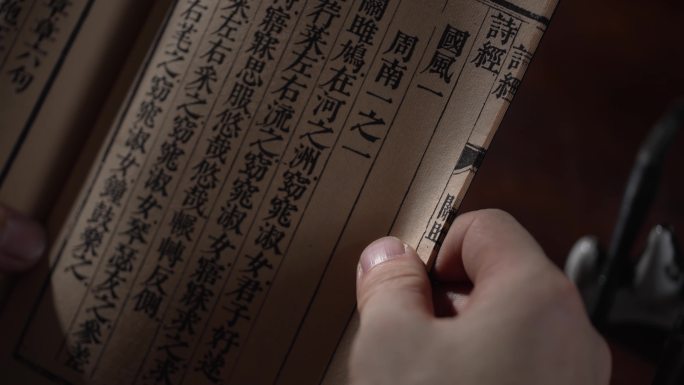 詩經
關雎
詩經
國風一
周南一之一
關雎鳩在河之洲窈窕淑女君子好逑
荇菜左右流之窈窕淑女寤寐求之
寤寐思服悠哉悠哉輾轉反側
菜左右采之窈窕淑女琴瑟友之參差
右芼之窈窕淑女鐘鼓樂之
章章六句